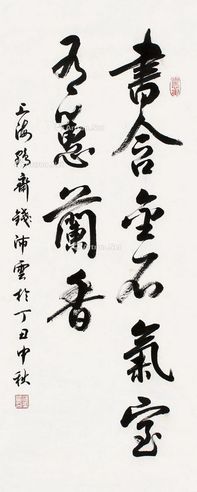 書含金石氣室
有蕙蘭香
上海齋錢沛雲於丁丑中秋